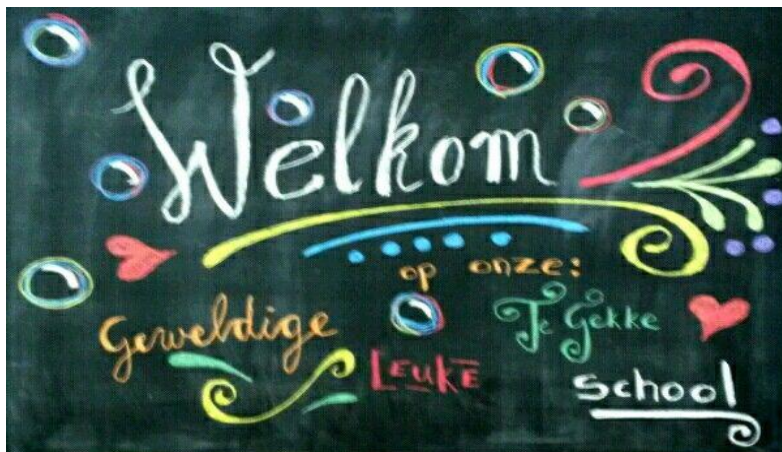 Welkom
op onze:
Geweldige
Te Gekke
Leuke
school